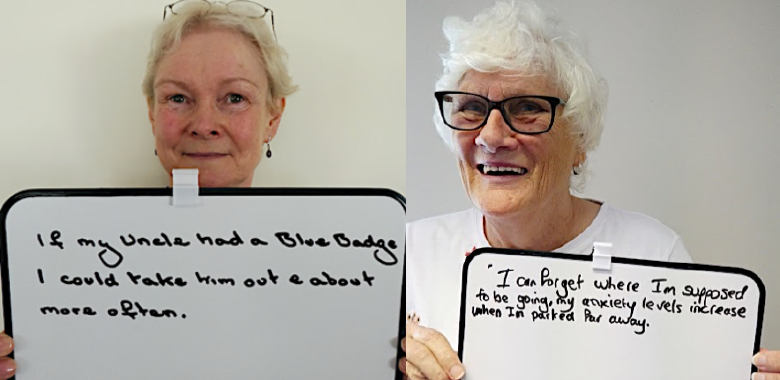 If my Uncle had a Blue Badge
I could take him out & about
more often.
"I can forget where I'm supposed
to be going, my anxiety levels increase
when I'm parked far away.